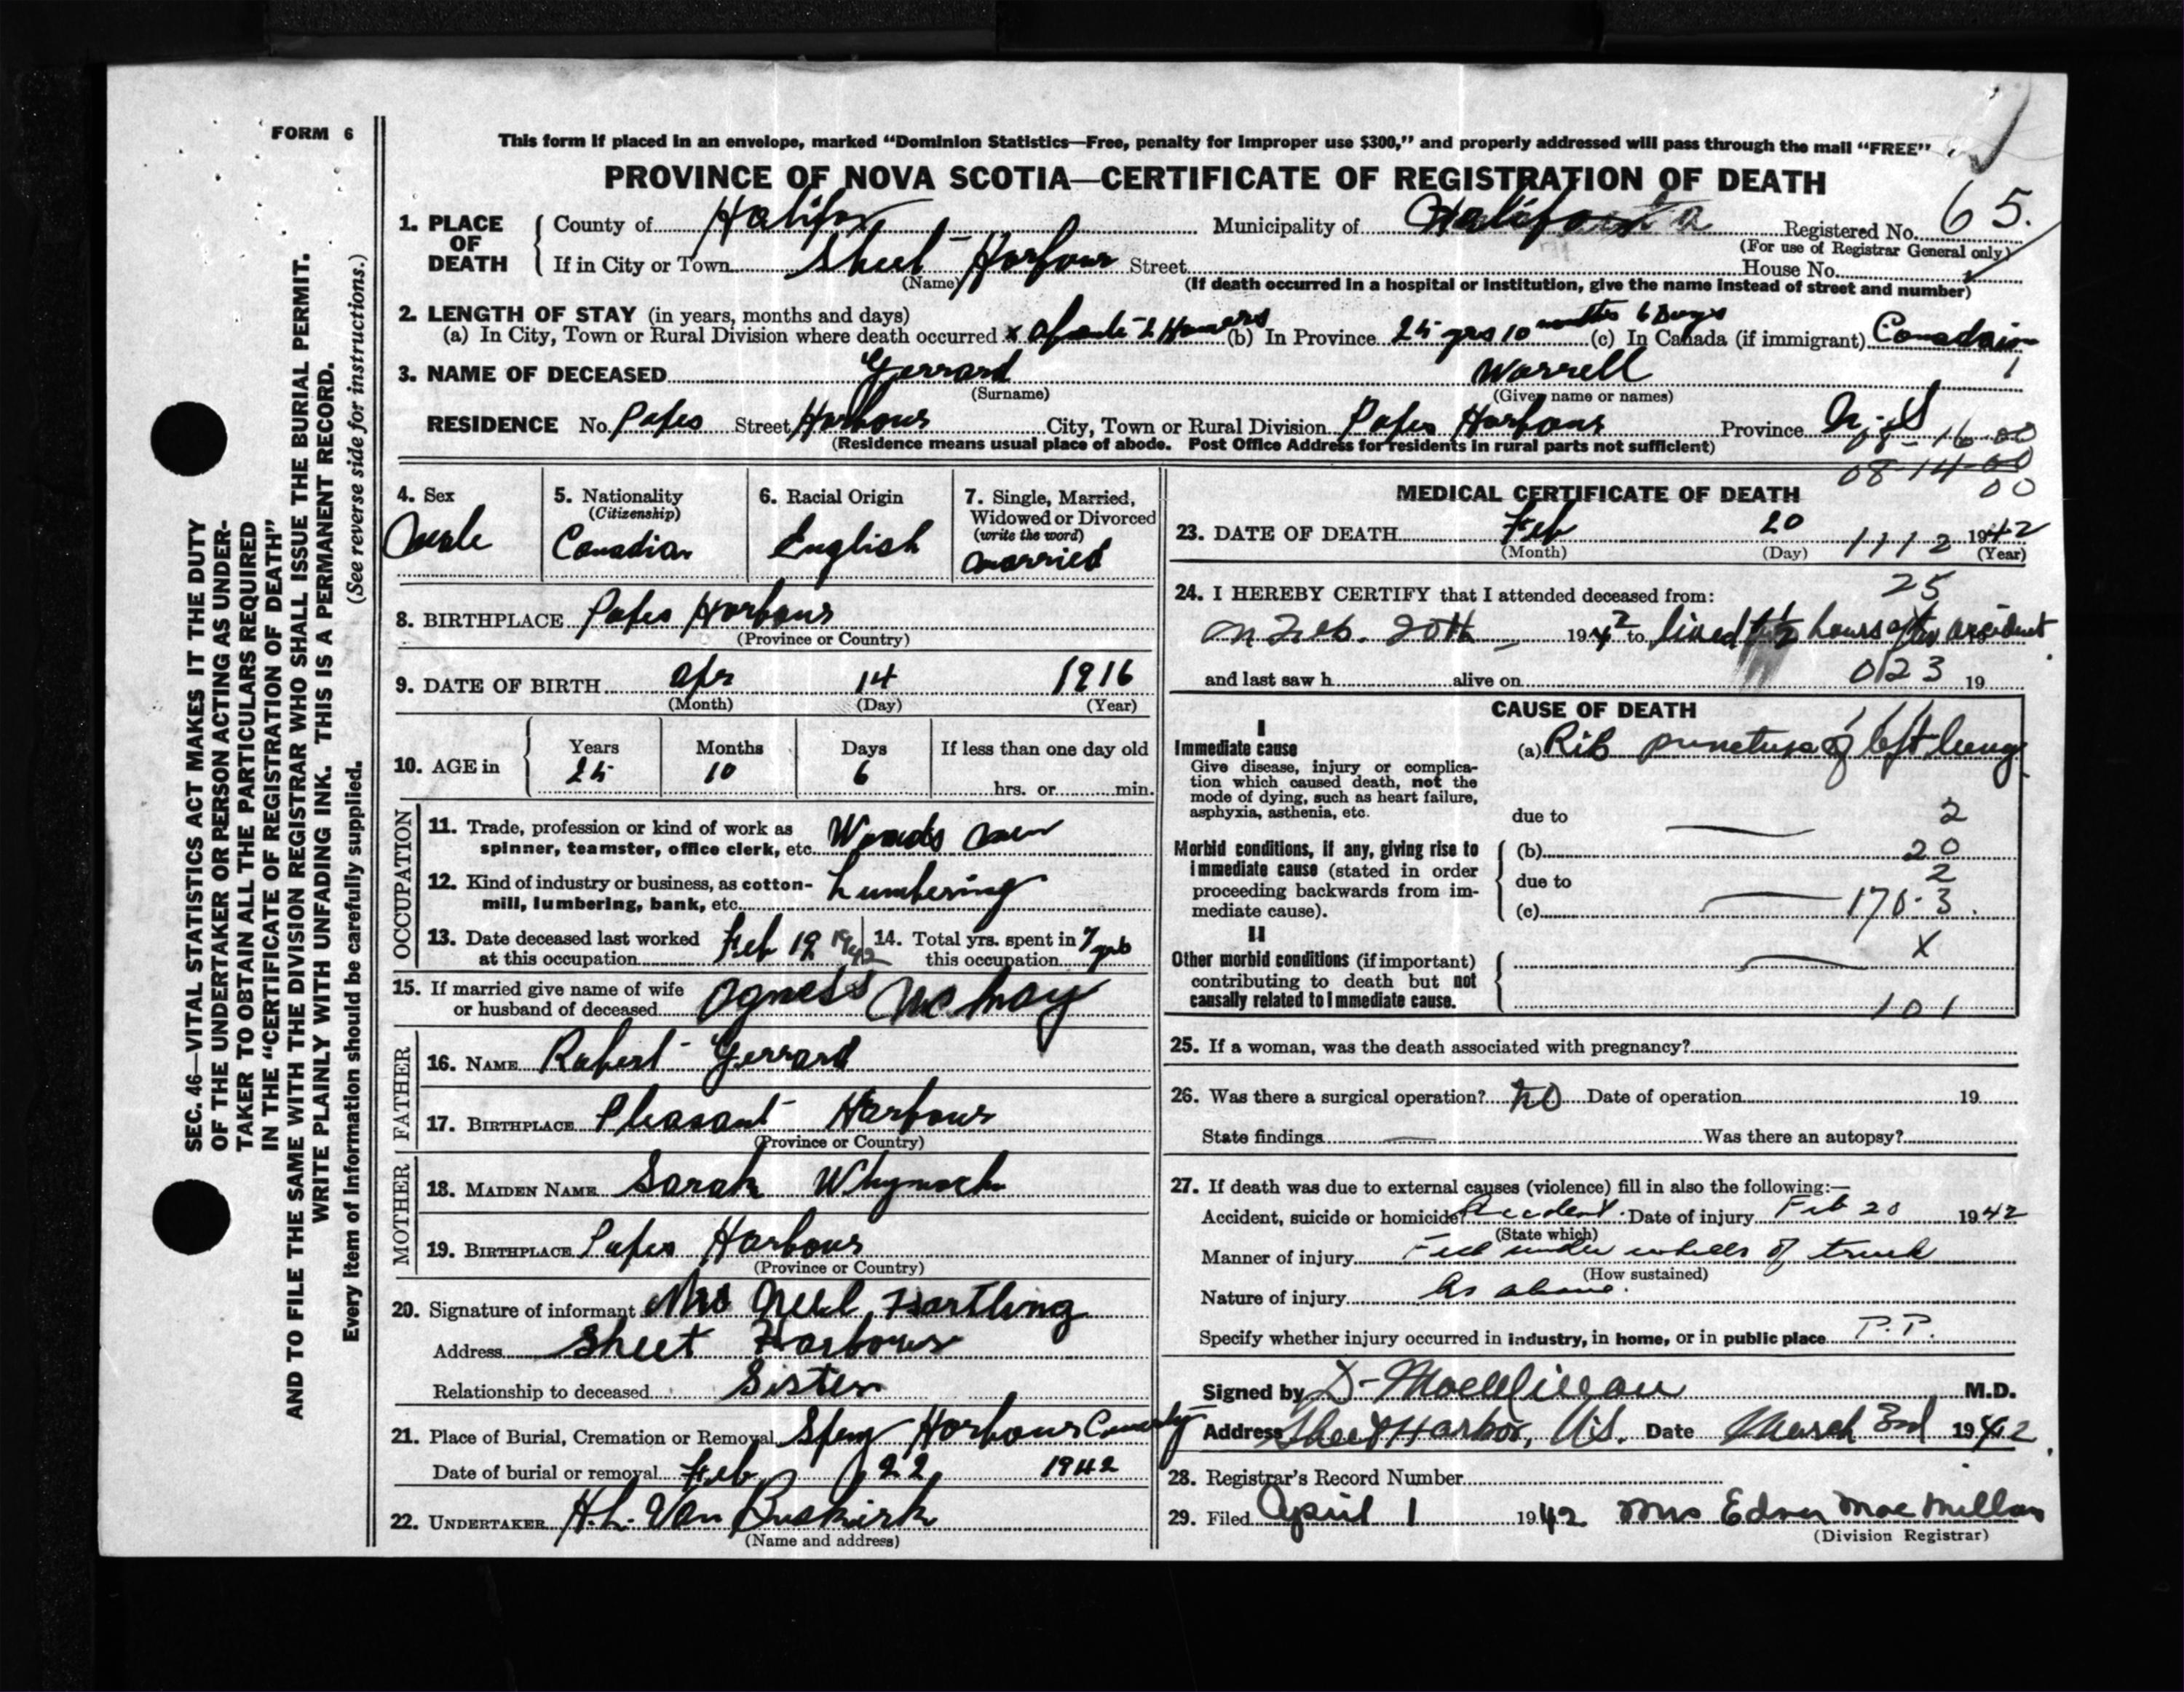 FORM 6
This form if placed in an envelope, marked "Dominion Statistics—Free, penalty for improper use $300," and properly addressed will pass through the mail "FREE"
PROVINCE OF NOVA SCOTIA—CERTIFICATE OF REGISTRATION OF DEATH
1. PLACE OF DEATH County of Halifax Municipality of Halifax Registered No. 65.
(For use of Registrar General only)
If in City or Town Sheet Harbour Street House No.
(Name) (If death occurred in a hospital or institution, give the name instead of street and number)
2. LENGTH OF STAY (in years, months and days)
(a) In City, Town or Rural Division where death occurred 2 (b) In Province 25 yrs 10 months 6 Days (c) In Canada (if immigrant) Canadain
3. NAME OF DECEASED Gerrard Worrell
(Surname) (Given name or names)
RESIDENCE No. Popes Street Harbour City, Town or Rural Division Popes Harbour Province N.S
(Residence means usual place of abode. Post Office Address for residents in rural parts not sufficient)
16-00
08-14-00
00
4. Sex 5. Nationality 6. Racial Origin 7. Single, Married,
(Citizenship) Widowed or Divorced
(write the word)
male Canadian English married
8. BIRTHPLACE Popes Harbour
(Province or Country)
9. DATE OF BIRTH Apr 14 1916
(Month) (Day) (Year)
10. AGE in Years Months Days If less than one day old
25 10 6 hrs. or min.
OCCUPATION
11. Trade, profession or kind of work as
spinner, teamster, office clerk, etc. Woods man
12. Kind of industry or business, as cotton-
mill, lumbering, bank, etc. Lumbering
13. Date deceased last worked at this occupation Feb 19 1942 14. Total yrs. spent in this occupation 7 yrs
15. If married give name of wife
or husband of deceased Agness
FATHER
16. NAME Robert Gerrard
17. BIRTHPLACE Pleasant Harbour
(Province or Country)
MOTHER
18. MAIDEN NAME Sarah
19. BIRTHPLACE Popes Harbour
(Province or Country)
20. Signature of informant Mrs Hartling
Address Sheet Harbour
Relationship to deceased Sister
21. Place of Burial, Cremation or Removal Spry Harbour
Date of burial or removal Feb 22 1942
22. UNDERTAKER H.L. Van Buskirk
(Name and address)
MEDICAL CERTIFICATE OF DEATH
23. DATE OF DEATH Feb 20 1112 1942
(Month) (Day) (Year)
24. I HEREBY CERTIFY that I attended deceased from: 25
on Feb. 20th 1942 to lived hours after accident
and last saw h alive on 19
023
CAUSE OF DEATH
I
Immediate cause
Give disease, injury or complica-
tion which caused death, not the
mode of dying, such as heart failure,
asphyxia, asthenia, etc.
(a) Rib puncture of left lung
due to 2
Morbid conditions, if any, giving rise to
immediate cause (stated in order
proceeding backwards from im-
mediate cause).
(b) 20
due to 2
(c) 170-3
II
Other morbid conditions (if important)
contributing to death but not
causally related to immediate cause.
X
101
25. If a woman, was the death associated with pregnancy?
26. Was there a surgical operation? No Date of operation 19
State findings Was there an autopsy?
27. If death was due to external causes (violence) fill in also the following:—
Accident, suicide or homicide? Accident. Date of injury Feb 20 1942
(State which)
Manner of injury Fell under wheels of truck
(How sustained)
Nature of injury As above.
Specify whether injury occurred in industry, in home, or in public place P.P.
Signed by D- MacMillan M.D.
Address Sheet Harbor, N.S. Date March 3rd 1942.
28. Registrar's Record Number
29. Filed April 1 1942 Mrs MacMillan
(Division Registrar)
SEC. 46—VITAL STATISTICS ACT MAKES IT THE DUTY
OF THE UNDERTAKER OR PERSON ACTING AS UNDER-
TAKER TO OBTAIN ALL THE PARTICULARS REQUIRED
IN THE "CERTIFICATE OF REGISTRATION OF DEATH"
AND TO FILE THE SAME WITH THE DIVISION REGISTRAR WHO SHALL ISSUE THE BURIAL PERMIT.
WRITE PLAINLY WITH UNFADING INK. THIS IS A PERMANENT RECORD.
Every item of information should be carefully supplied. (See reverse side for instructions.)